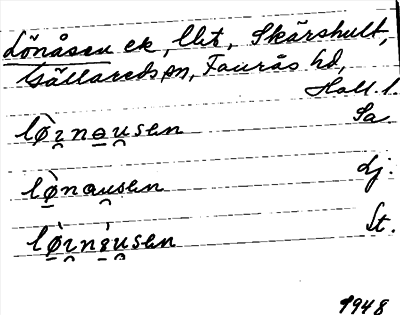 Lönåsen ek, Uht, Skärshult,
Gällareds sn, Faurås hd,
Hall. l.
lø̀ınausen Sa.
lø̀nausen Lj.
lø̀ınàusen St.
1948